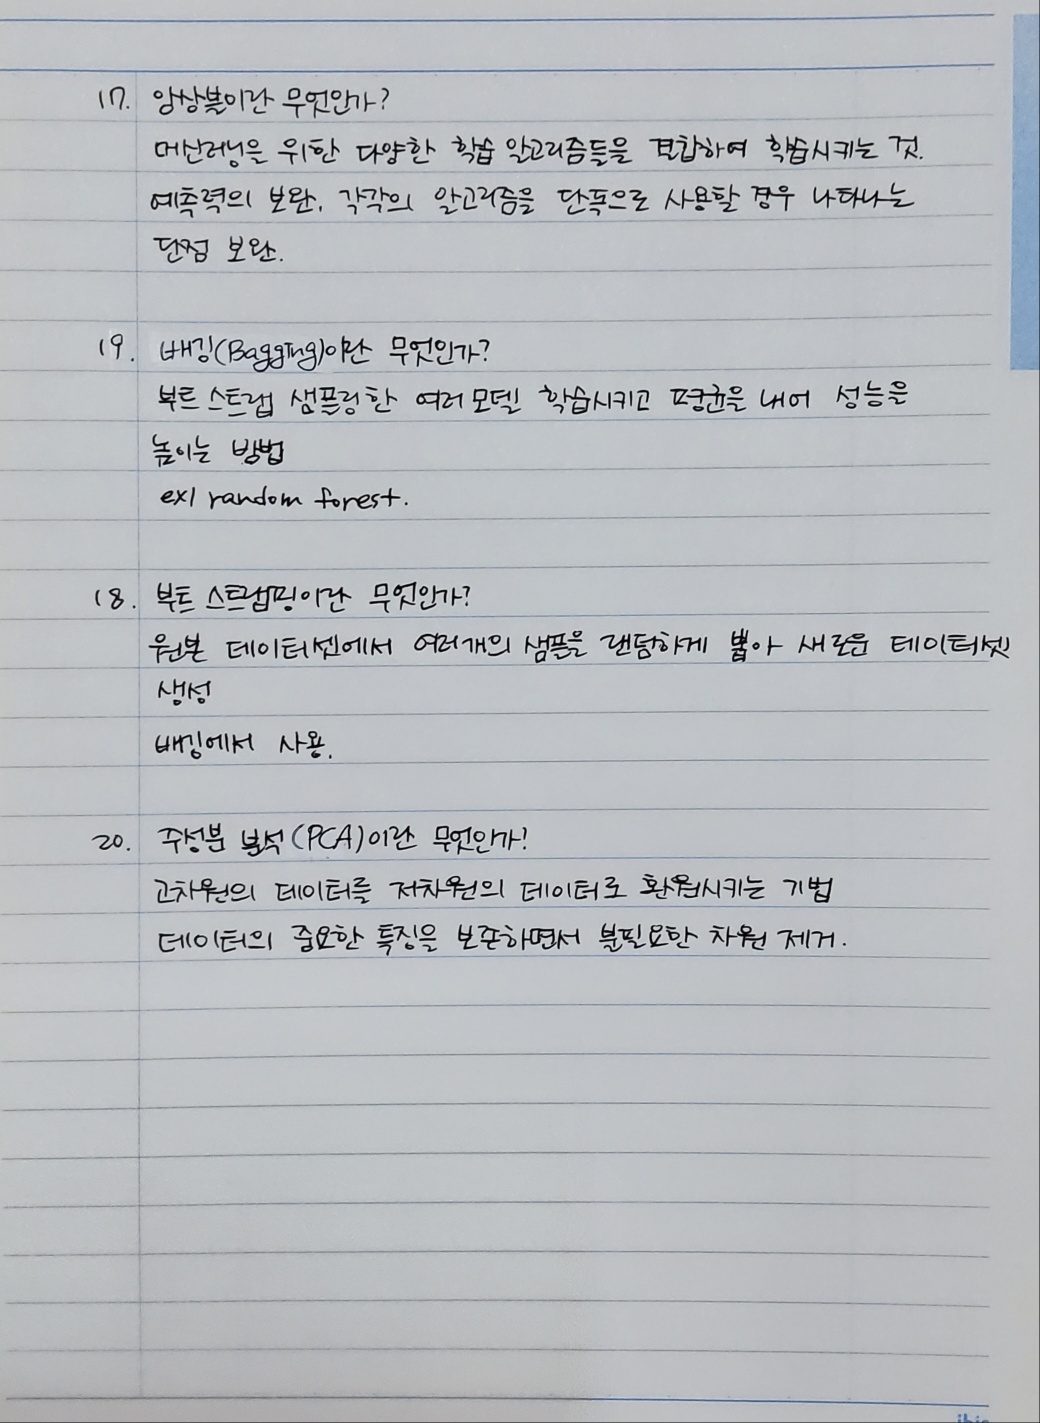 17. 앙상블이란 무엇인가?
머신러닝을 위한 다양한 학습 알고리즘들을 결합하여 학습시키는 것.
예측력의 보완, 각각의 알고리즘을 단독으로 사용할 경우 나타나는
단점 보완.
19. 배깅(Bagging)이란 무엇인가?
부트스트랩 샘플링한 여러모델 학습시키고 평균을 내어 성능을
높이는 방법
ex) random forest.
18. 부트스트랩핑이란 무엇인가?
원본 데이터셋에서 여러개의 샘플을 랜덤하게 뽑아 새로운 데이터셋
생성
배깅에서 사용.
20. 주성분 분석(PCA)이란 무엇인가?
고차원의 데이터를 저차원의 데이터로 환원시키는 기법
데이터의 중요한 특징을 보존하면서 불필요한 차원 제거.